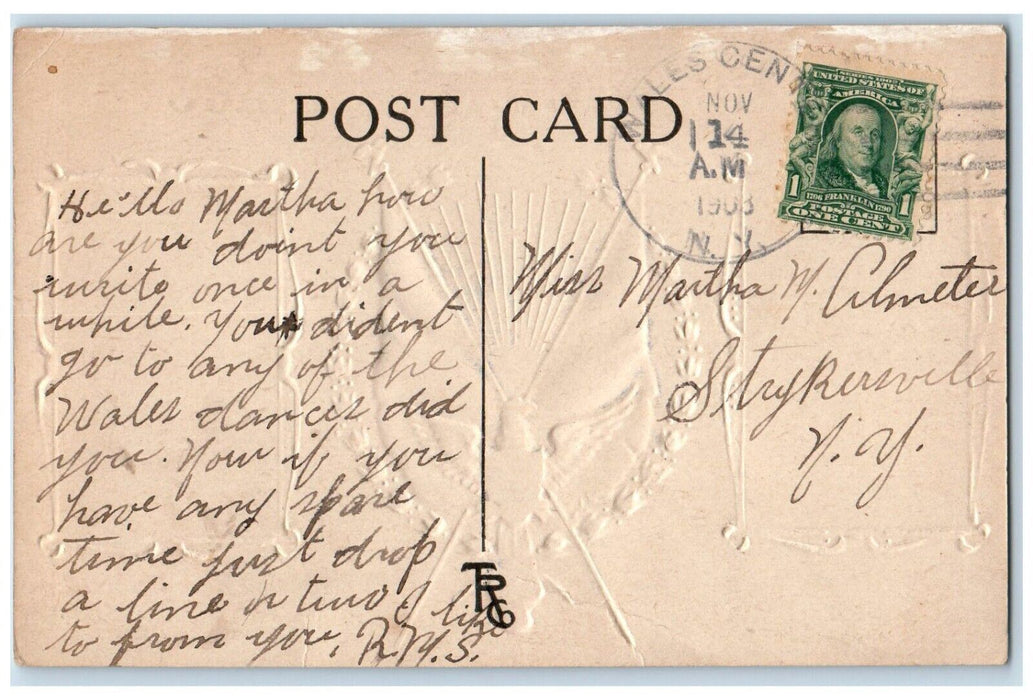 POST CARD
WALES CENT
NOV
14
A.M
1908
N. Y.
SERIES 1902
UNITED STATES OF
AMERICA
1706 FRANKLIN 1790
POSTAGE
1 ONE CENT 1
Hello Martha how
are you doint you
write once in a
while. You dident
go to any of the
Wales dances did
you. Now if you
have any spare
time just drop
a line or two I like
to from you. R.M.S.
Miss Martha M. Almeter
Strykersville
N. Y.
TRCo